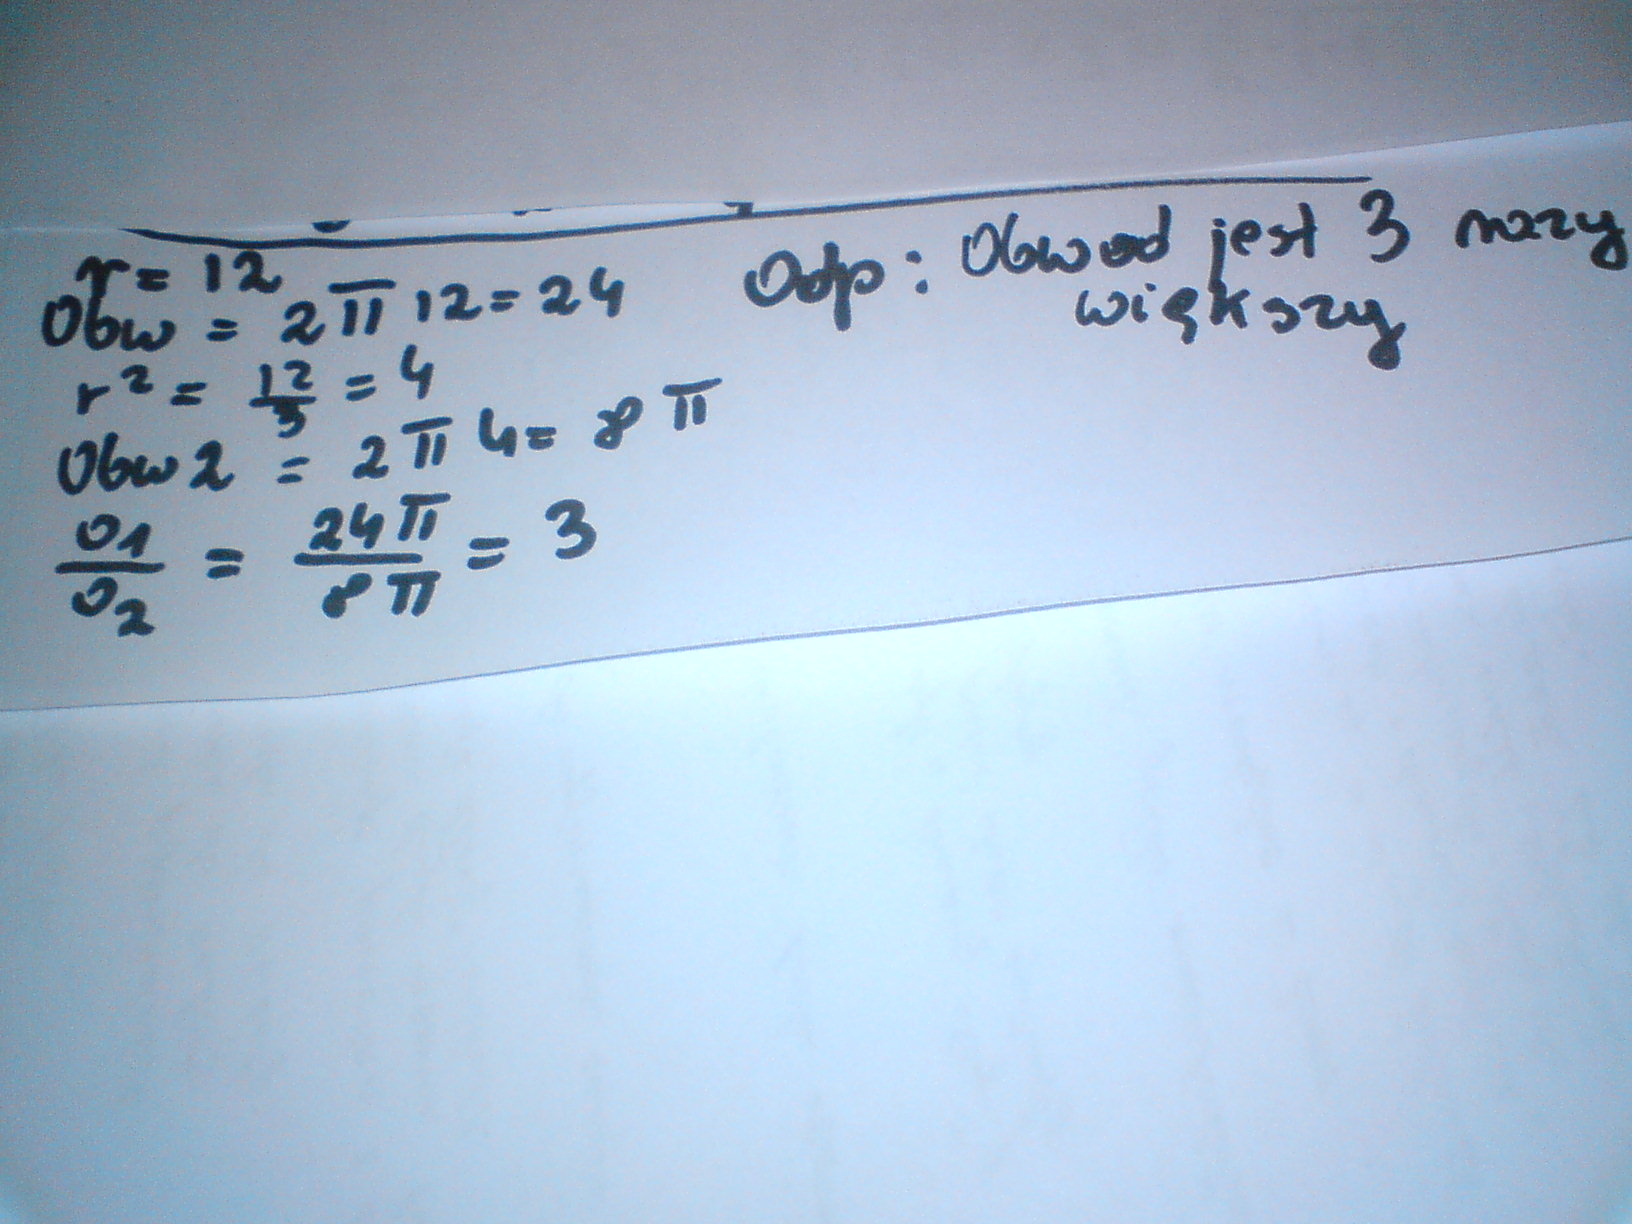 r = 12
Obw = 2 π 12 = 24
r² = 12/3 = 4
Obw 2 = 2 π 4 = 8 π
O1/O2 = 24 π/8 π = 3
Odp: Obwod jest 3 razy
większy